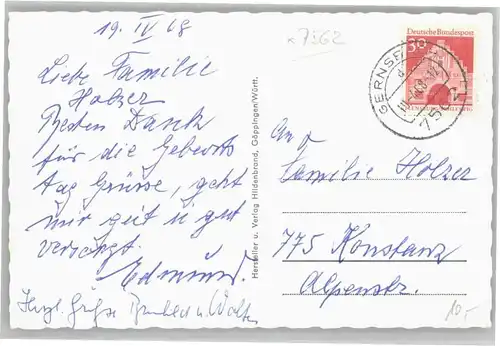 19. IV 68
x7562
Liebe Familie
Holzer
Besten Dank
für die Geburts
tag Grüsse, geht
mir gut u gut
versorgt.
Edmund.
Herzl. Grüße
Hersteller u. Verlag Hildenbrand, Göppingen/Württ.
Deutsche Bundespost
30
GERNSB
756
An
Familie Holzer
775 Konstanz
Alpenstr.
10,-